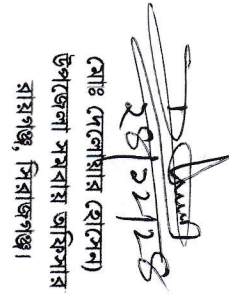 ২৪/১২/২৪
(মোঃ দেলোয়ার হোসেন)
উপজেলা সমবায় অফিসার
রায়গঞ্জ, সিরাজগঞ্জ।